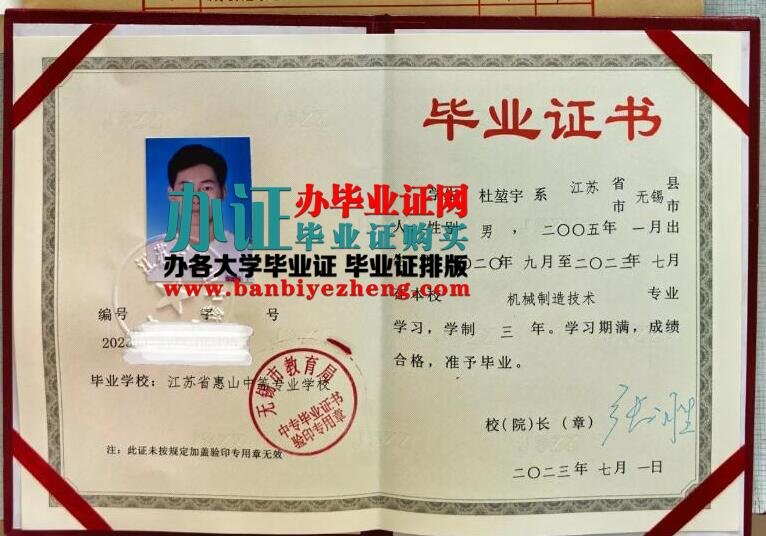 毕业证书
杜堃宇 系 江苏 省市 无锡 县市
人，性别 男 ，二〇〇五年 一月出
二〇年 九月至二〇二三年 七月
在本校 机械制造技术 专业
学习，学制 三 年。学习期满，成绩
合格，准予毕业。
校(院)长（章）
二〇二三年 七月 一日
编号 学 号
202
毕业学校：江苏省惠山中等专业学校
注：此证未按规定加盖验印专用章无效
无锡市教育局
中专毕业证书
验印专用章
办证
办毕业证网
毕业证购买
办各大学毕业证 毕业证排版
www.banbiyezheng.com